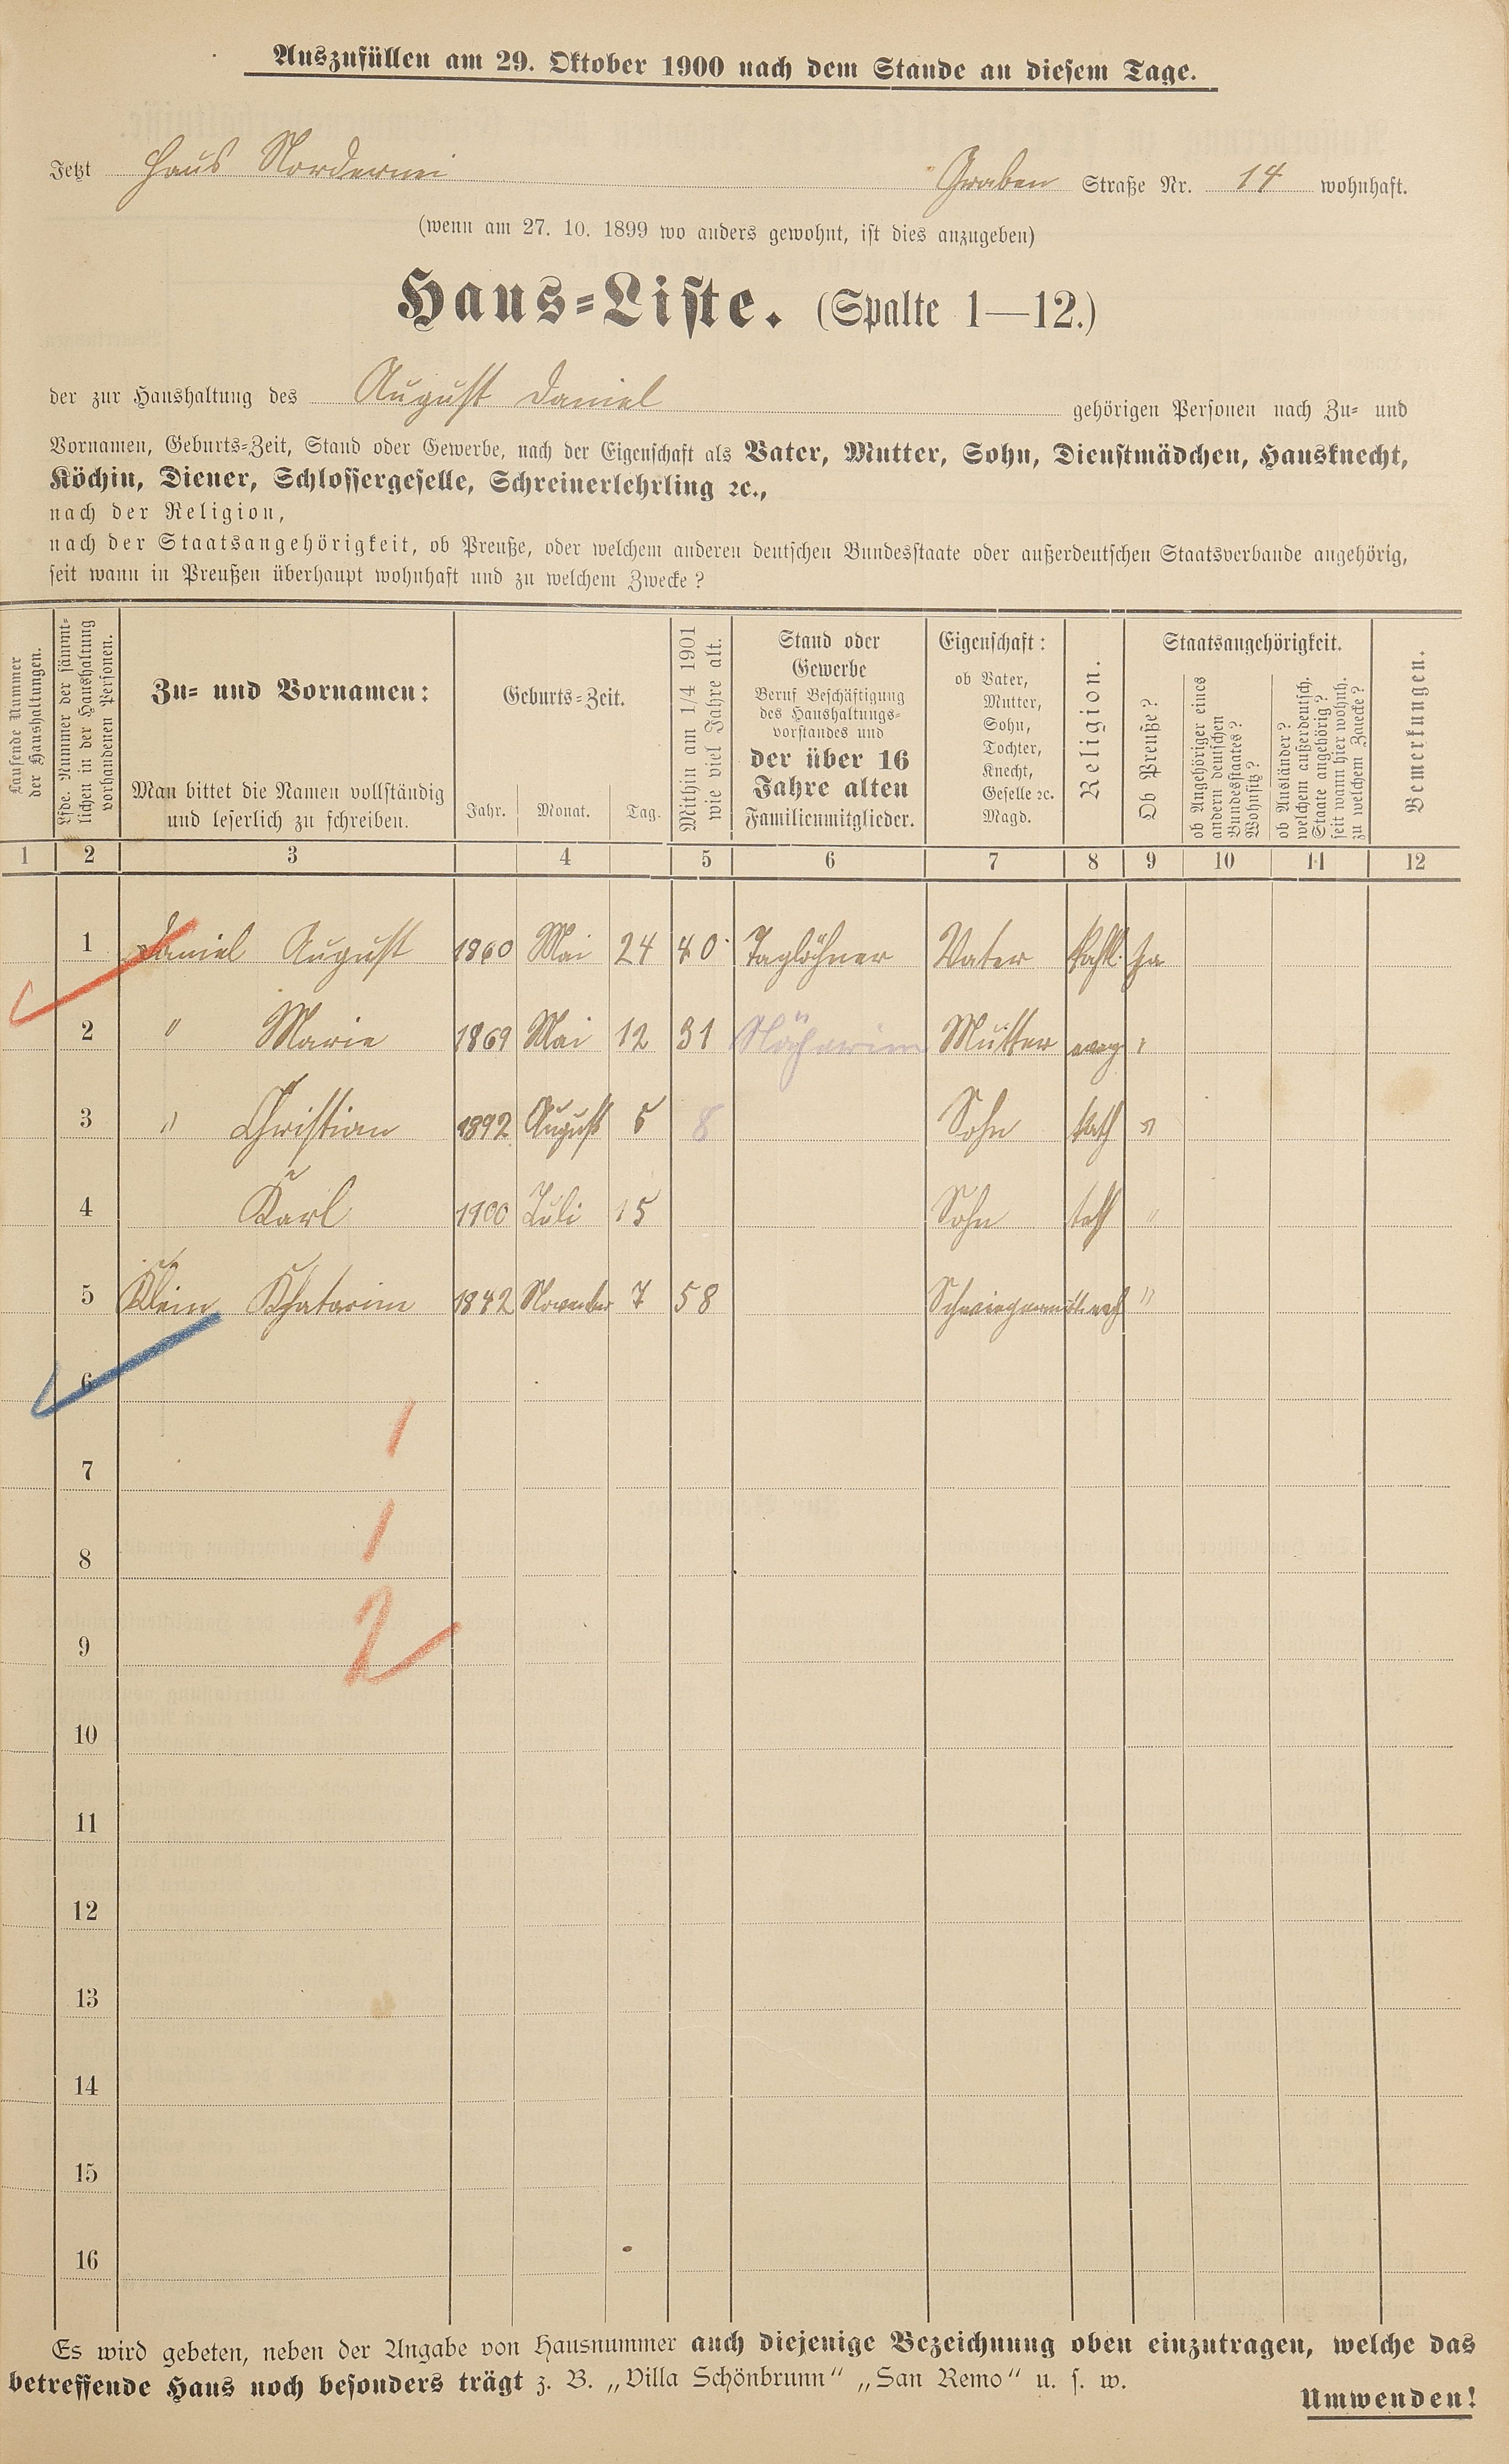 Auszufüllen am 29. Oktober 1900 nach dem Stande an diesem Tage.
Jetzt Haus Nordernei Graben Straße Nr. 14 wohnhaft.
(wenn am 27. 10. 1899 wo anders gewohnt, ist dies anzugeben)
Haus=Liste. (Spalte 1—12.)
der zur Haushaltung des August Daniel gehörigen Personen nach Zu= und
Vornamen, Geburts=Zeit, Stand oder Gewerbe, nach der Eigenschaft als Vater, Mutter, Sohn, Dienstmädchen, Hausknecht,
Köchin, Diener, Schlossergeselle, Schreinerlehrling ꝛc.,
nach der Religion,
nach der Staatsangehörigkeit, ob Preuße, oder welchem anderen deutschen Bundesstaate oder außerdeutschen Staatsverbande angehörig,
seit wann in Preußen überhaupt wohnhaft und zu welchem Zwecke?
Laufende Nummer
der Haushaltungen.
Lfde. Nummer der sämmt=
lichen in der Haushaltung
vorhandenen Personen.
Zu= und Vornamen:
Man bittet die Namen vollständig
und leserlich zu schreiben.
Geburts=Zeit.
Jahr. Monat. Tag.
Mithin am 1/4 1901
wie viel Jahre alt.
Stand oder
Gewerbe
Beruf Beschäftigung
des Haushaltungs=
vorstandes und
der über 16
Jahre alten
Familienmitglieder.
Eigenschaft:
ob Vater,
Mutter,
Sohn,
Tochter,
Knecht,
Geselle ꝛc.
Magd.
Religion.
Staatsangehörigkeit.
Ob Preuße?
ob Angehöriger eines
andern deutschen
Bundesstaates?
Wohnsitz?
ob Ausländer?
welchem außerdeutsch.
Staate angehörig?
seit wann hier wohnh.
zu welchem Zwecke?
Bemerkungen.
1 2 3 4 5 6 7 8 9 10 11 12
1 Daniel August 1860 Mai 24 40 Taglöhner Vater Kathl. Ja
2 " Marie 1869 Mai 12 31 Näherin Mutter evang "
3 " Christian 1892 August 5 8 Sohn kath "
4 Karl 1900 Juli 15 Sohn kath "
5 Klein Khatarine 1842 November 7 58 Schwiegermutt. "
6
1
7
1
8
2
9
10
11
12
13
14
15
16
Es wird gebeten, neben der Angabe von Hausnummer auch diejenige Bezeichnung oben einzutragen, welche das
betreffende Haus noch besonders trägt z. B. „Villa Schönbrunn“ „San Remo“ u. s. w.
Umwenden!